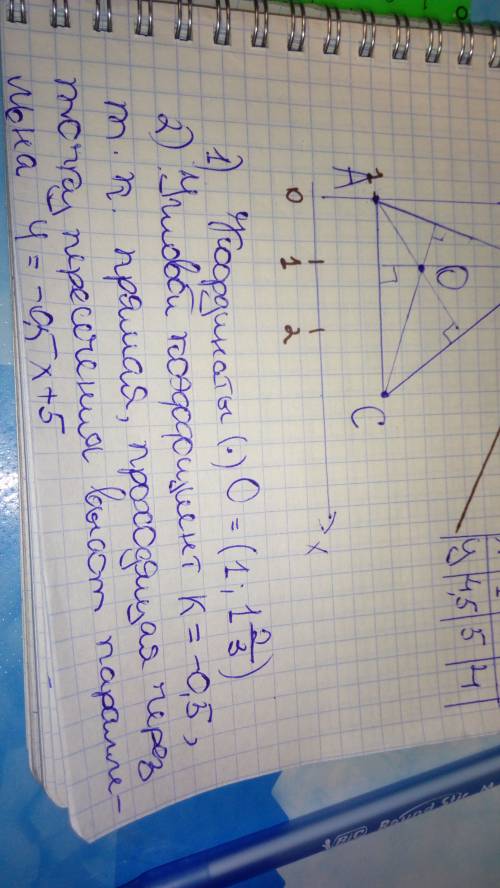 A 1
O
C
0 1 2 x
y 4,5 5 4
1) Координаты (·) O = (1; 1 2/3)
2) Угловой коэффициент k = -0,5,
т. п. прямая, проходящая через
точку пересечения высот паралле-
льна y = -0,5x+5
BIC Round Stic M